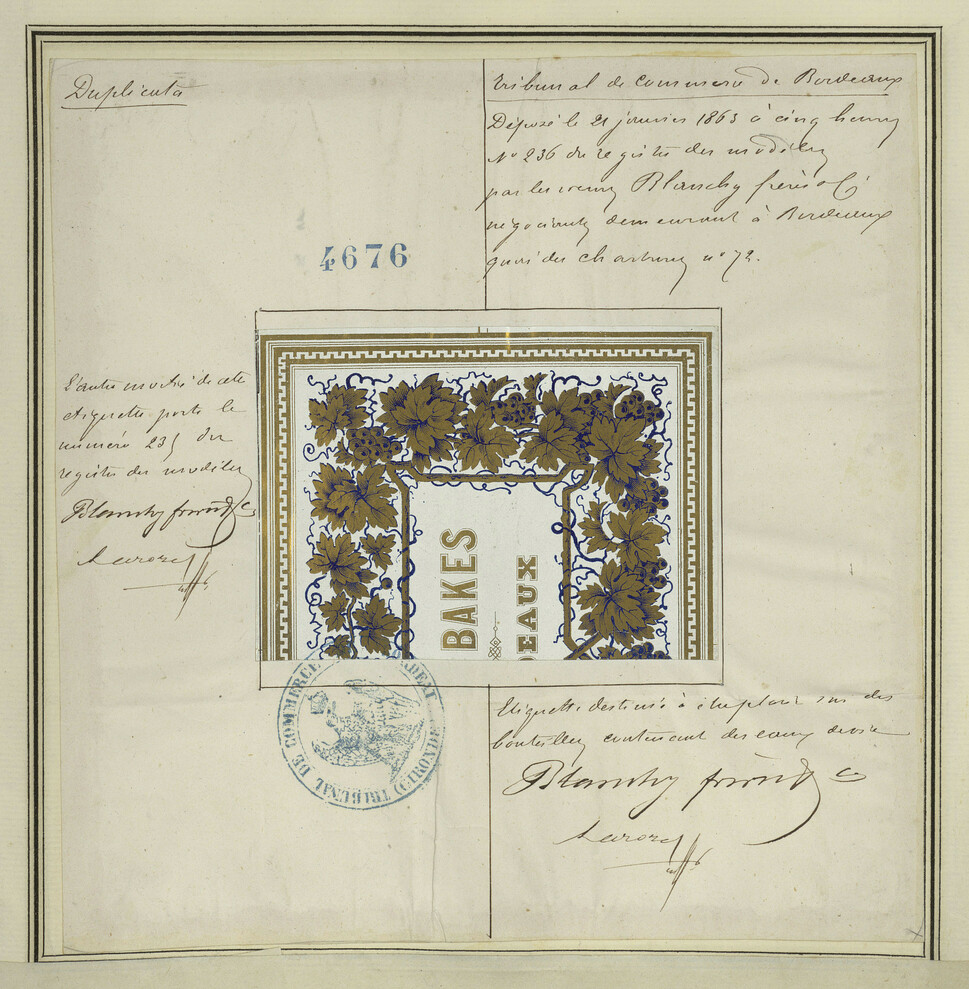 Duplicata
Tribunal de Commerce de Bordeaux
Déposé le 21 janvier 1863 à cinq heures
No 236 du registre des modèles
par les sieurs Blanchy frères & Cie
négociants demeurant à Bordeaux
quai des Chartrons no 72.
4676
L'autre moitié de cette
étiquette porte le
numéro 235 du
registre des modèles
Blanchy frères & Cie
BAKES
DEAUX
TRIBUNAL DE COMMERCE
Etiquette destinée à être employée sur des
bouteilles contenant des eaux de vie
Blanchy frères & Cie